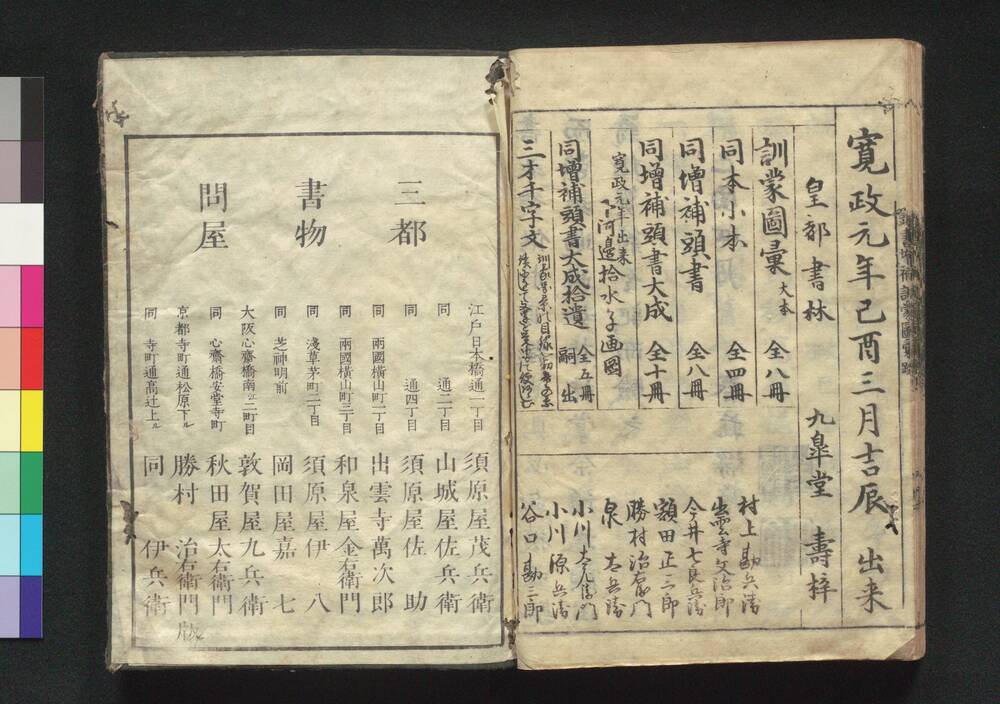 寛政元年己酉三月吉辰　出来
皇都書林　九皐堂　壽梓
訓蒙圖彙 大本 全八冊
同本小本 全四冊
同増補頭書 全八冊
同増補頭書大成 全十冊
寛政元年出来
下河邊拾水子画圖
同増補頭書大成拾遺 全五冊 嗣出
三才千字文
村上勘兵衛
出雲寺文治郎
今井七良兵衛
額田正三郎
勝村治右衛門
泉太兵衛
小川太左衛門
小川源兵衛
谷口勘三郎
三都
書物
問屋
江戸日本橋通一丁目 須原屋茂兵衛
同 通二丁目 山城屋佐兵衛
同 通四丁目 須原屋佐助
同 兩國横山町一丁目 出雲寺萬次郎
同 兩國横山町三丁目 和泉屋金右衛門
同 淺草茅町二丁目 須原屋伊八
同 芝神明前 岡田屋嘉七
大阪心齋橋南江二町目 敦賀屋九兵衛
同 心齋橋安堂寺町 秋田屋太右衛門
京都寺町通松原下ル 勝村治右衛門版
同 寺町通高辻上ル 同 伊兵衛